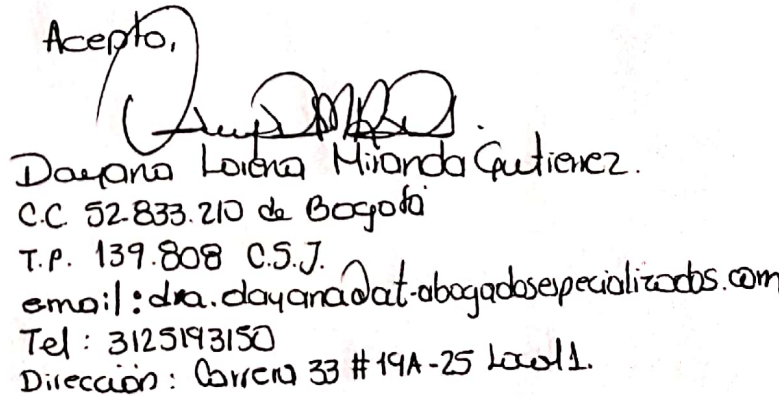 Acepto,
Dayana Lorena Miranda Gutierrez.
C.C. 52.833.210 de Bogotá
T.P. 139.808 C.S.J.
email: dra.dayana@at-abogadosespecializados.com
Tel: 3125193150
Dirección: Carrera 33 # 19A-25 Local 1.